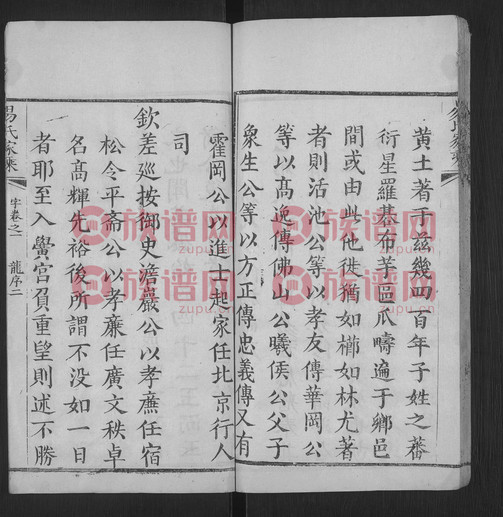 黃土著于兹幾四百年子姓之蕃
衍星羅基布芋邑瓜疇遍于鄉邑
間或由此他徙猶如櫛如林尤著
者則活池公等以孝友傳華岡公
等以高逸傳佛山公曦侯公父子
象生公等以方正傳忠義傳又有
霍岡公以進士起家任北京行人
司
欽差廵按御史澹巖公以孝亷任宿
松令平斋公以孝亷任廣文秩卓
名高輝先裕後所謂不没如一日
者耶至入黌宮負重望則述不勝
易氏家乘
字卷之一
龍序二
族谱网
zupu.cn
族谱网
zupu.cn
族谱网
zupu.cn
族谱网
zupu.cn